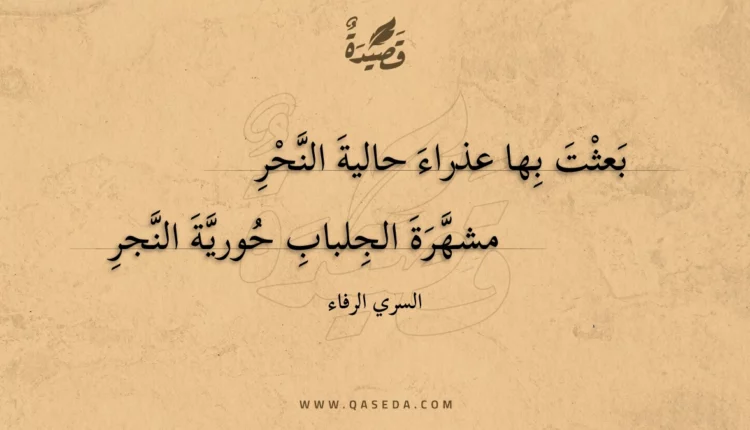 قَصِيْدَةٌ
بَعثْتَ بِها عذراءَ حاليةَ النَّحْرِ
مشهَّرَةَ الجِلبابِ حُوريَّةَ النَّجرِ
السري الرفاء
WWW.QASEDA.COM